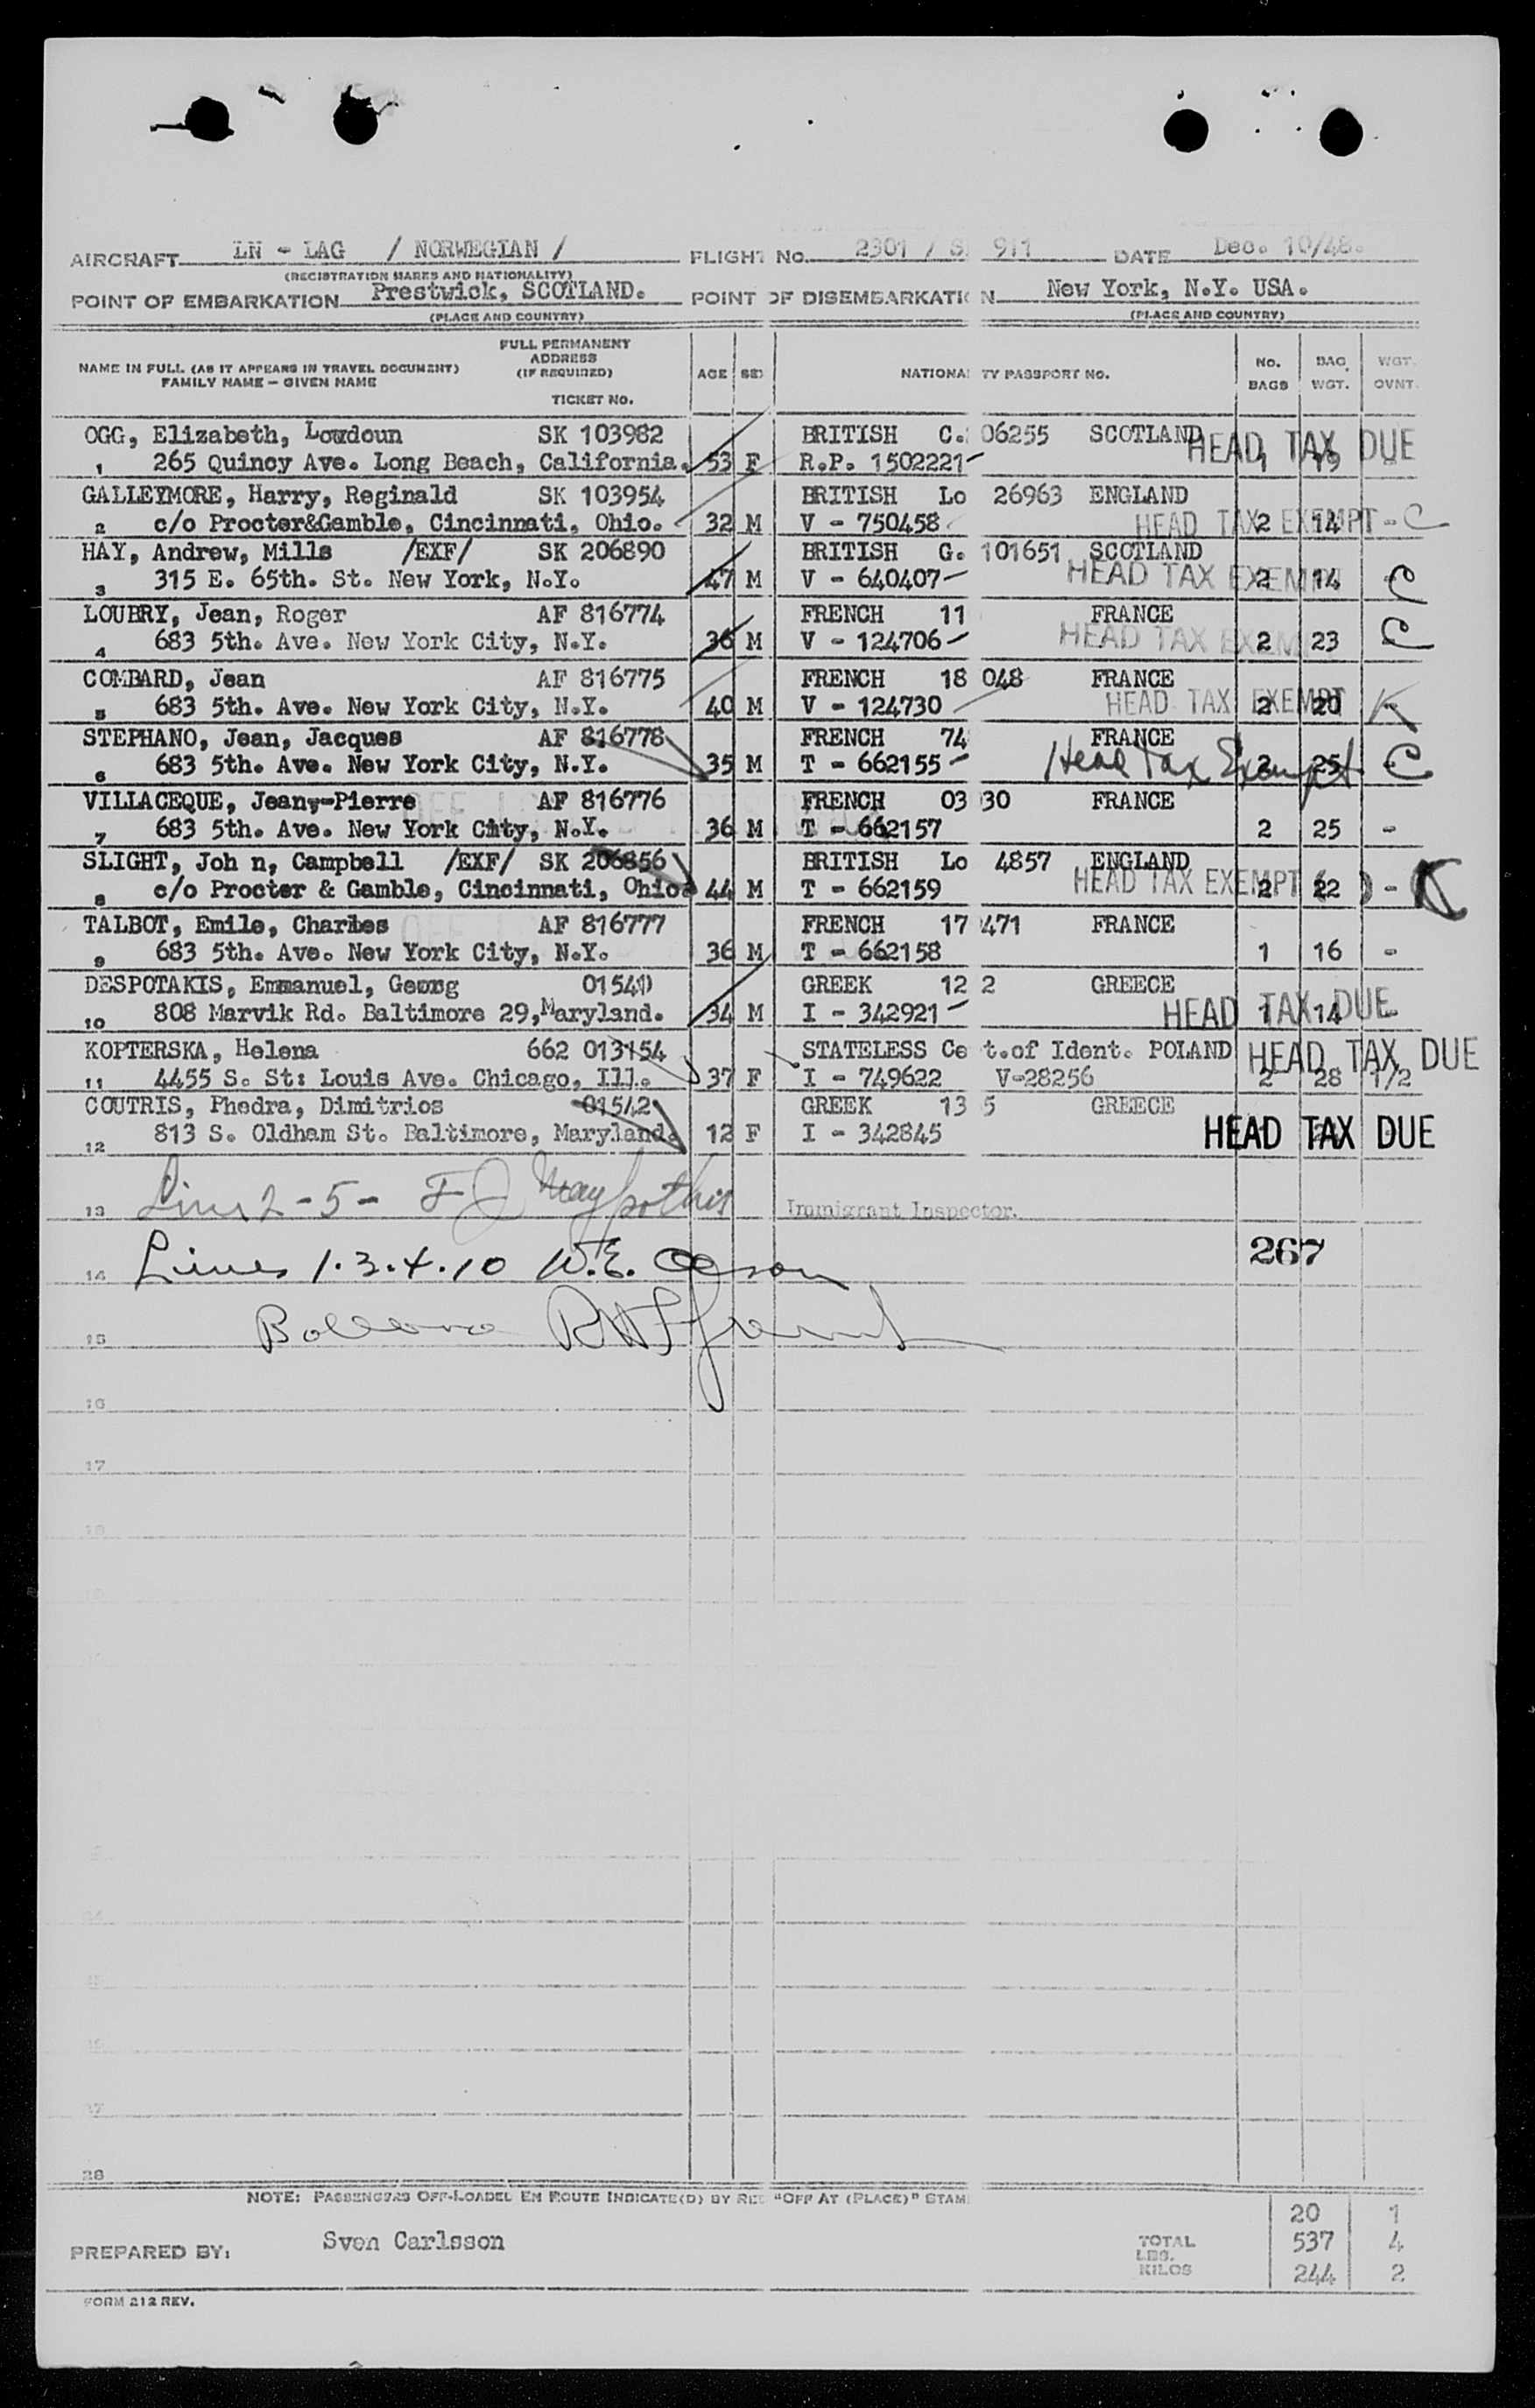 AIRCRAFT LN - LAG / NORWEGIAN / FLIGHT No. 2301 / S 911 DATE Dec. 10/48.
(REGISTRATION MARKS AND NATIONALITY)
POINT OF EMBARKATION Prestwick, SCOTLAND. POINT OF DISEMBARKATI N New York, N.Y. USA.
(PLACE AND COUNTRY) (PLACE AND COUNTRY)
NAME IN FULL (AS IT APPEARS IN TRAVEL DOCUMENT) FAMILY NAME — GIVEN NAME FULL PERMANENT ADDRESS (IF REQUIRED) TICKET No. AGE SEX NATIONA TY PASSPORT NO. No. BAGS BAG. WGT. WGT. OVNT.
OGG, Elizabeth, Loudoun SK 103982 BRITISH C. 06255 SCOTLAND HEAD TAX DUE
1 265 Quincy Ave. Long Beach, California. 53 F R.P. 1502221 1 19
GALLEYMORE, Harry, Reginald SK 103954 BRITISH Lo 26963 ENGLAND
2 c/o Procter&Gamble, Cincinnati, Ohio. 32 M V - 750458 HEAD TAX EXEMPT 2 14 - C
HAY, Andrew, Mills /EXF/ SK 206890 BRITISH G. 101651 SCOTLAND
3 315 E. 65th. St. New York, N.Y. 47 M V - 640407 HEAD TAX EXEMPT 2 14 C
LOUBRY, Jean, Roger AF 816774 FRENCH 11 FRANCE
4 683 5th. Ave. New York City, N.Y. 36 M V - 124706 HEAD TAX EXEM 2 23 C
COMBARD, Jean AF 816775 FRENCH 18 048 FRANCE
5 683 5th. Ave. New York City, N.Y. 40 M V - 124730 HEAD TAX EXEMPT 2 20 - K
STEPHANO, Jean, Jacques AF 816778 FRENCH 74 FRANCE
6 683 5th. Ave. New York City, N.Y. 35 M T - 662155 Head Tax Exempt 2 25 - C
VILLACEQUE, Jean,-Pierre AF 816776 FRENCH 03 30 FRANCE
7 683 5th. Ave. New York City, N.Y. 36 M T - 662157 2 25 -
SLIGHT, Joh n, Campbell /EXF/ SK 206856 BRITISH Lo 4857 ENGLAND
8 c/o Procter & Gamble, Cincinnati, Ohio. 44 M T - 662159 HEAD TAX EXEMPT 2 22 - K
TALBOT, Emile, Charles AF 816777 FRENCH 17 471 FRANCE
9 683 5th. Ave. New York City, N.Y. 36 M T - 662158 1 16 -
DESPOTAKIS, Emmanuel, Georg 01541 GREEK 12 2 GREECE
10 808 Marvik Rd. Baltimore 29, Maryland. 34 M I - 342921 HEAD TAX DUE 1 14
KOPTERSKA, Helena 662 013154 STATELESS Ce t.of Ident. POLAND HEAD TAX DUE
11 4455 S. St: Louis Ave. Chicago, Ill. 37 F I - 749622 V-28256 2 28 1/2
COUTRIS, Phedra, Dimitrios 01542 GREEK 13 5 GREECE
12 813 S. Oldham St. Baltimore, Maryland. 12 F I - 342845 HEAD TAX DUE
13 Lines 2 - 5 - Immigrant Inspector.
14 Lines 1.3.4.10 W.E. 267
15
16
17
18
28
NOTE: PASSENGERS OFF-LOADED EN ROUTE INDICATE(D) BY RED "OFF AT (PLACE)" STAM
20 1
PREPARED BY: Sven Carlsson TOTAL LBS. 537 4
KILOS 244 2
FORM 212 REV.